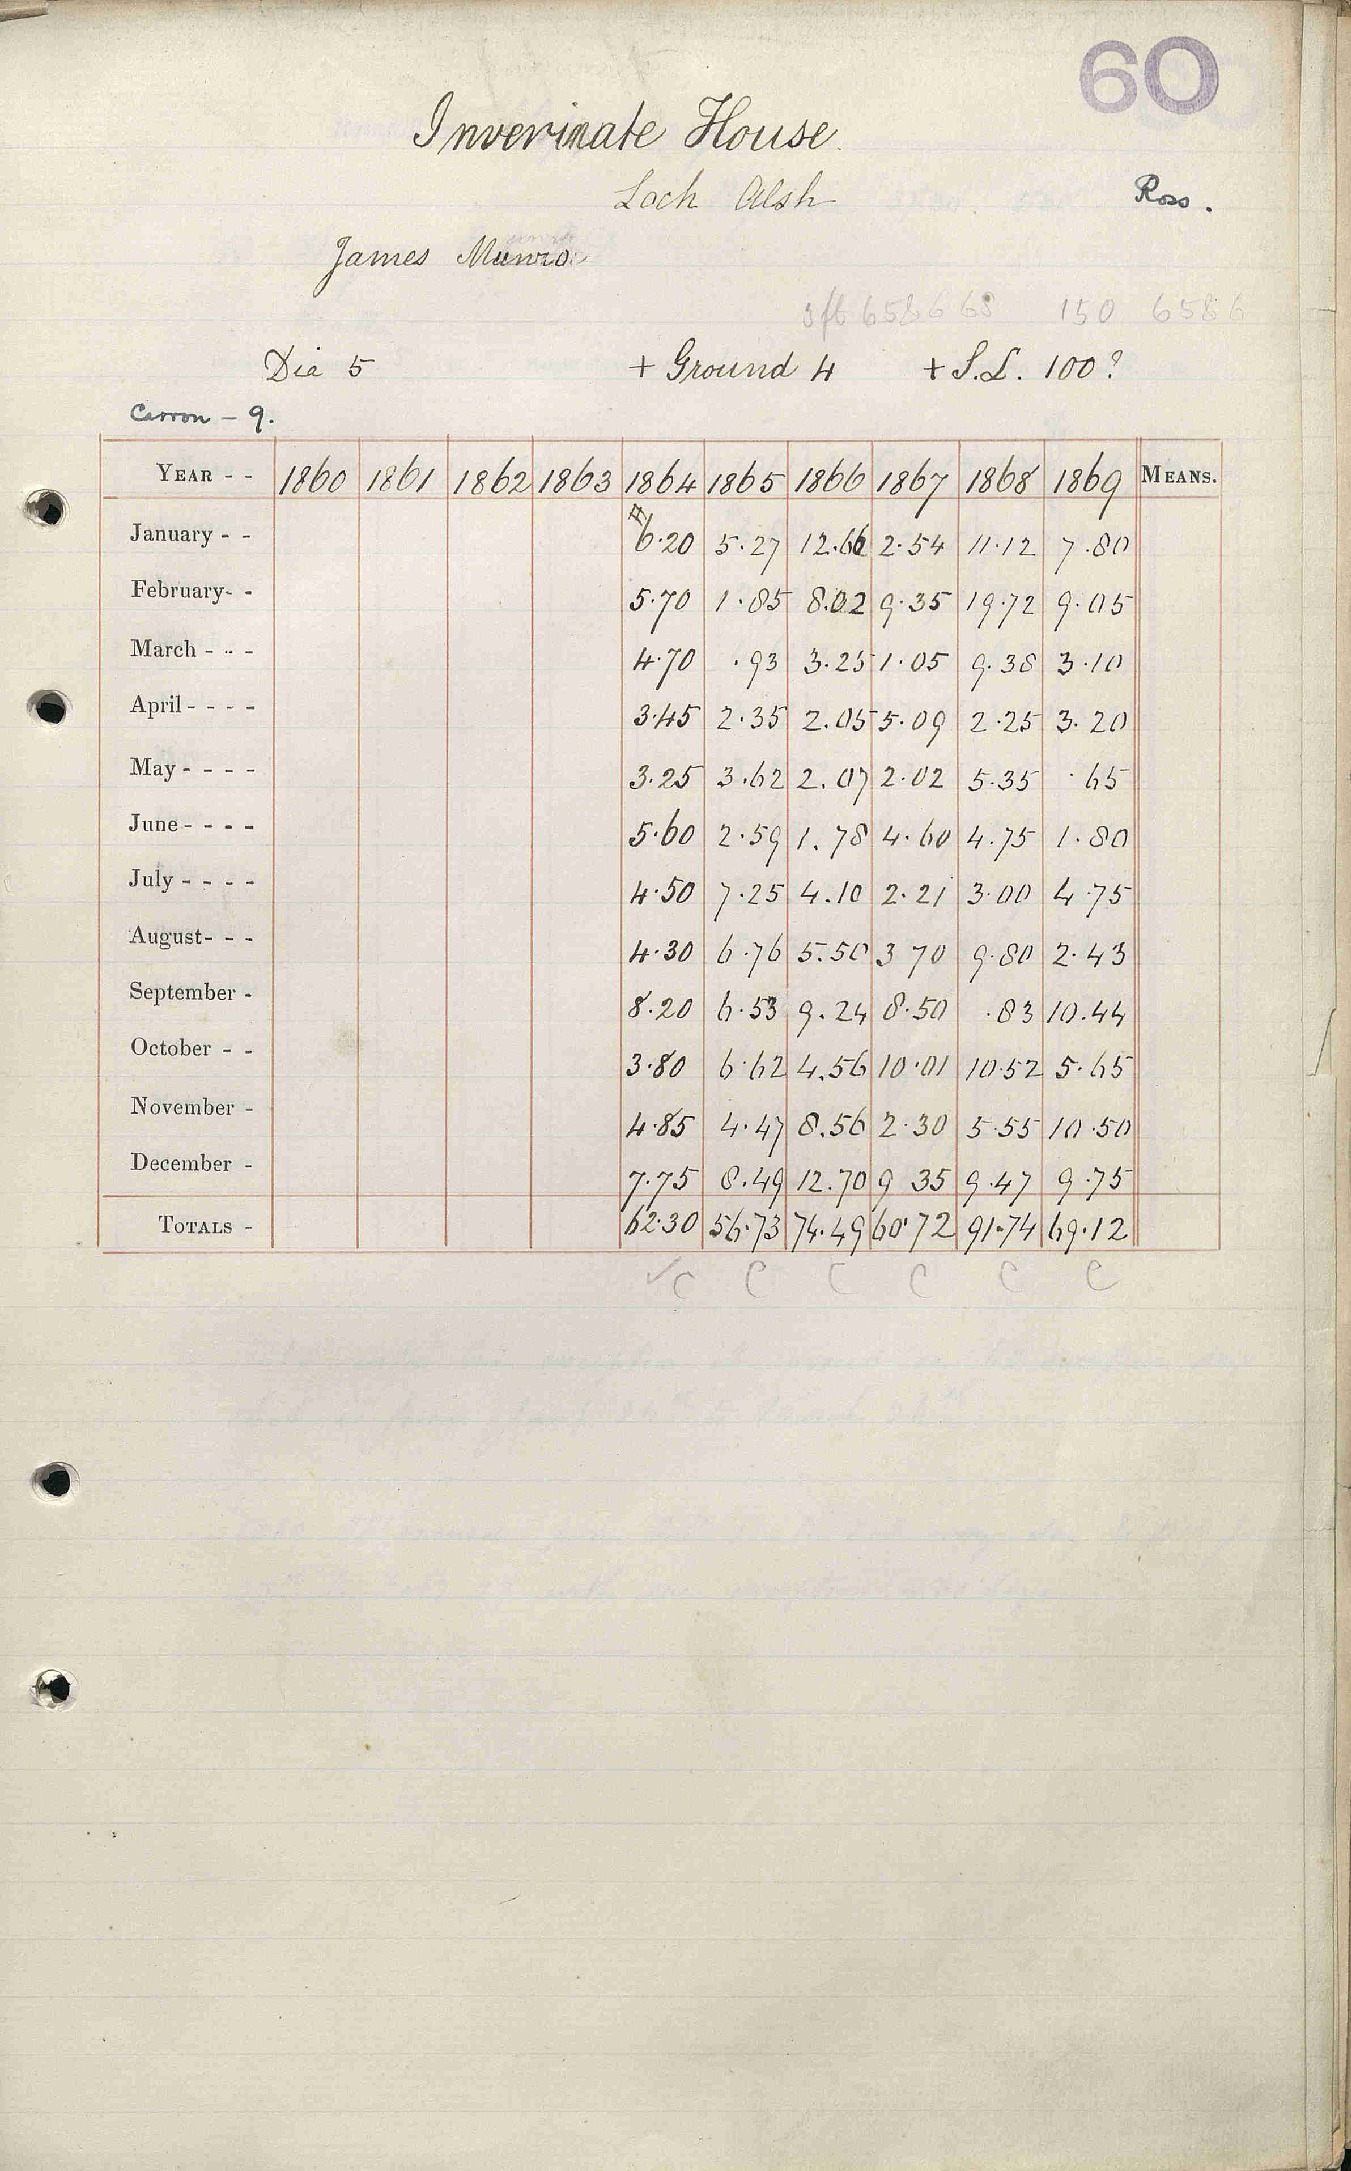 60
Inverinate House.
Loch Alsh Ross.
James Munro
150 6586
Dia 5 + Ground 4 + S.L. 100?
Carron - 9.
YEAR - - 1860 1861 1862 1863 1864 1865 1866 1867 1868 1869 MEANS.
January - - 6.20 5.27 12.66 2.54 11.12 7.80
February - - 5.70 1.85 8.02 9.35 19.72 9.05
March - - - 4.70 .93 3.25 1.05 9.38 3.10
April - - - - 3.45 2.35 2.05 5.09 2.25 3.20
May - - - - 3.25 3.62 2.07 2.02 5.35 .65
June - - - - 5.60 2.59 1.78 4.60 4.75 1.80
July - - - - 4.50 7.25 4.10 2.21 3.00 4.75
August - - - 4.30 6.76 5.50 3 70 9.80 2.43
September - 8.20 6.53 9.24 8.50 .83 10.44
October - - 3.80 6.62 4.56 10.01 10.52 5.65
November - 4.85 4.47 8.56 2.30 5.55 10.50
December - 7.75 8.49 12.70 9 35 9.47 9.75
TOTALS - 62.30 56.73 74.49 60.72 91.74 69.12
✓C C C C C C